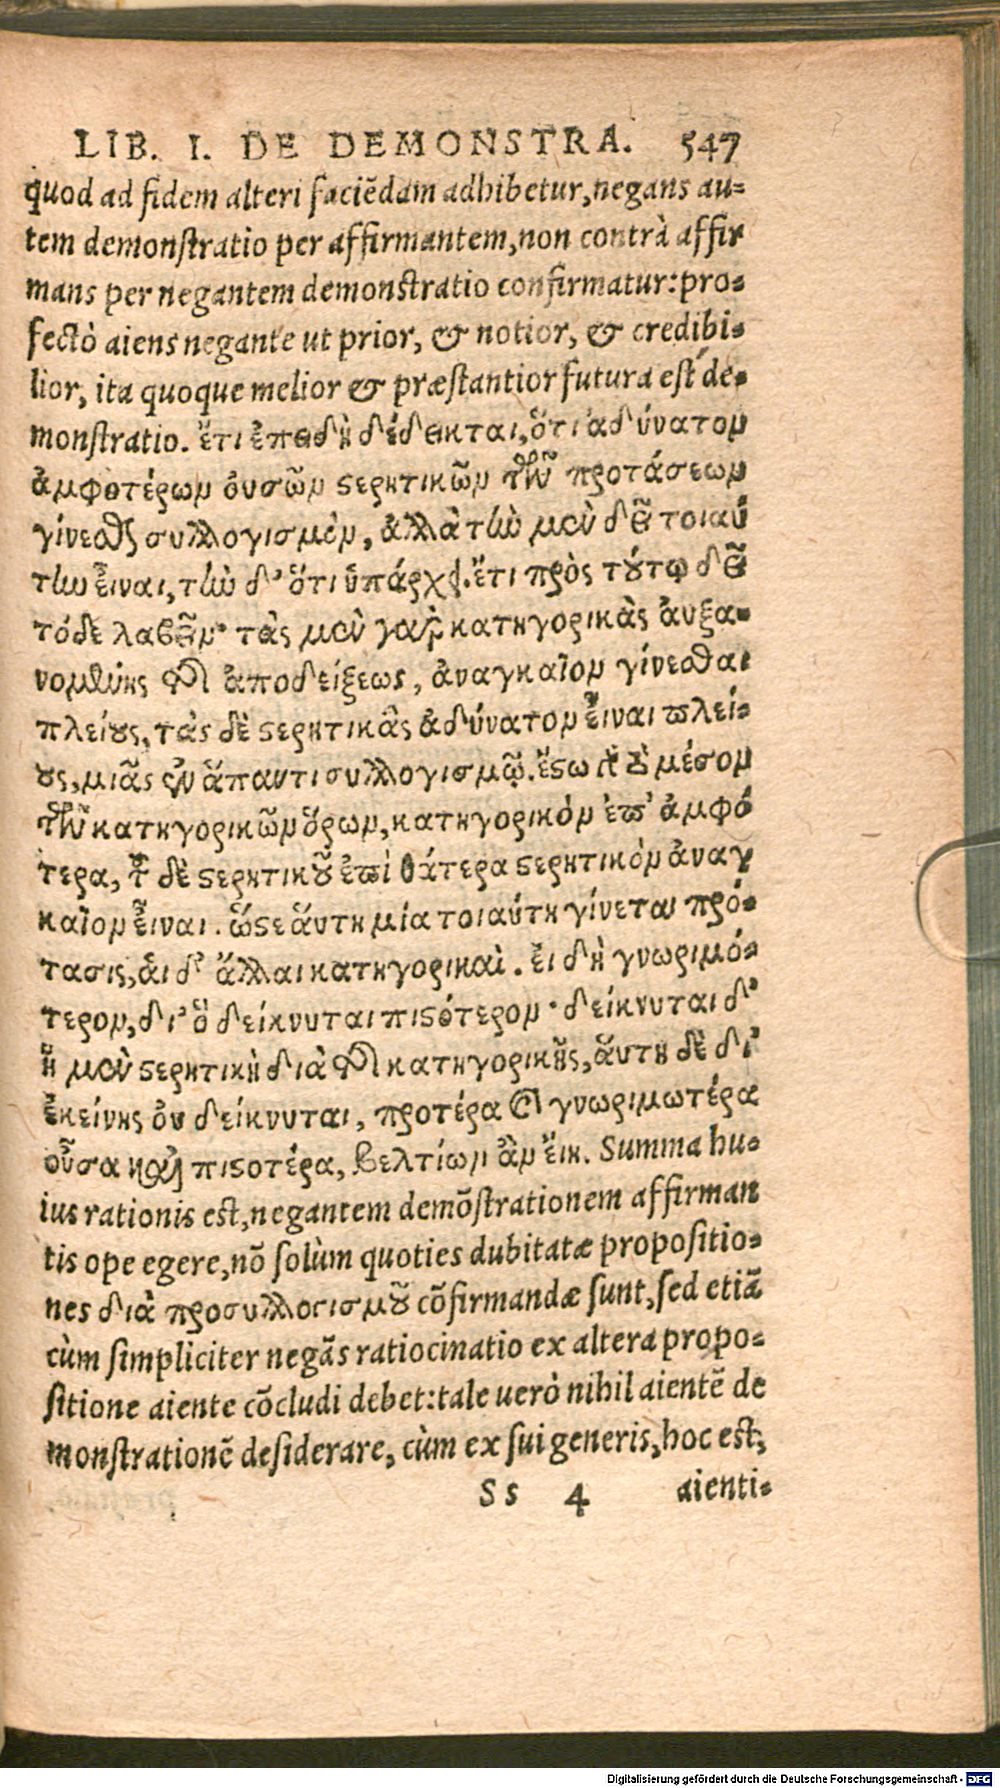 LIB. I. DE DEMONSTRA. 547
quod ad fidem alteri faciēdam adhibetur, negans au-
tem demonstratio per affirmantem, non contrà affir
mans per negantem demonstratio confirmatur: pro-
fectò aiens negante ut prior, & notior, & credibi-
lior, ita quoque melior & præstantior futura est de-
monstratio. ἔτι ἐπειδὴ δέδεικται, ὅτι ἀδύνατον
ἀμφοτέρων οὐσῶν στερητικῶν τῶν προτάσεων
γίνεσθαι συλλογισμὸν, ἀλλὰ τὴν μὲν δεῖ τοιαύ
την εἶναι, τὴν δ' ὅτι ὑπάρχει. ἔτι πρὸς τούτῳ δεῖ
τόδε λαβεῖν· τὰς μὲν γὰρ κατηγορικὰς ἀυξα-
νομένης τῆς ἀποδείξεως, ἀναγκαῖον γίνεσθαι
πλείους, τὰς δὲ στερητικὰς ἀδύνατον εἶναι πλεί-
ους, μιᾶς ἐν ἅπαντι συλλογισμῷ. ἔστω γὰρ οὐ μέσον
τῶν κατηγορικῶν ὅρων, κατηγορικὸν ἐπ' ἀμφό
τερα, τοῦ δὲ στερητικοῦ ἐπὶ θάτερα στερητικὸν ἀναγ
καῖον εἶναι. ὥστε ἅυτη μία τοιαύτη γίνεται πρό-
τασις, ἁι δ' ἄλλαι κατηγορικαὶ. ἐι δὴ γνωριμό-
τερον, δι' ὃ δείκνυται πιστότερον· δείκνυται δ'
ἡ μὲν στερητικὴ διὰ τῆς κατηγορικῆς, ἅυτη δὲ δι'
ἐκείνης οὐ δείκνυται, προτέρα καὶ γνωριμωτέρα
οὖσα καὶ πιστοτέρα, βελτίων ἂν ἔιη. Summa hu-
ius rationis est, negantem demōstrationem affirman
tis ope egere, nō solùm quoties dubitatæ propositio-
nes διὰ προσυλλογισμοῦ cōfirmandæ sunt, sed etiā
cùm simpliciter negās ratiocinatio ex altera propo-
sitione aiente cōcludi debet: tale uerò nihil aientē de
monstrationē desiderare, cùm ex sui generis, hoc est,
Ss 4 aienti-
Digitalisierung gefördert durch die Deutsche Forschungsgemeinschaft - DFG